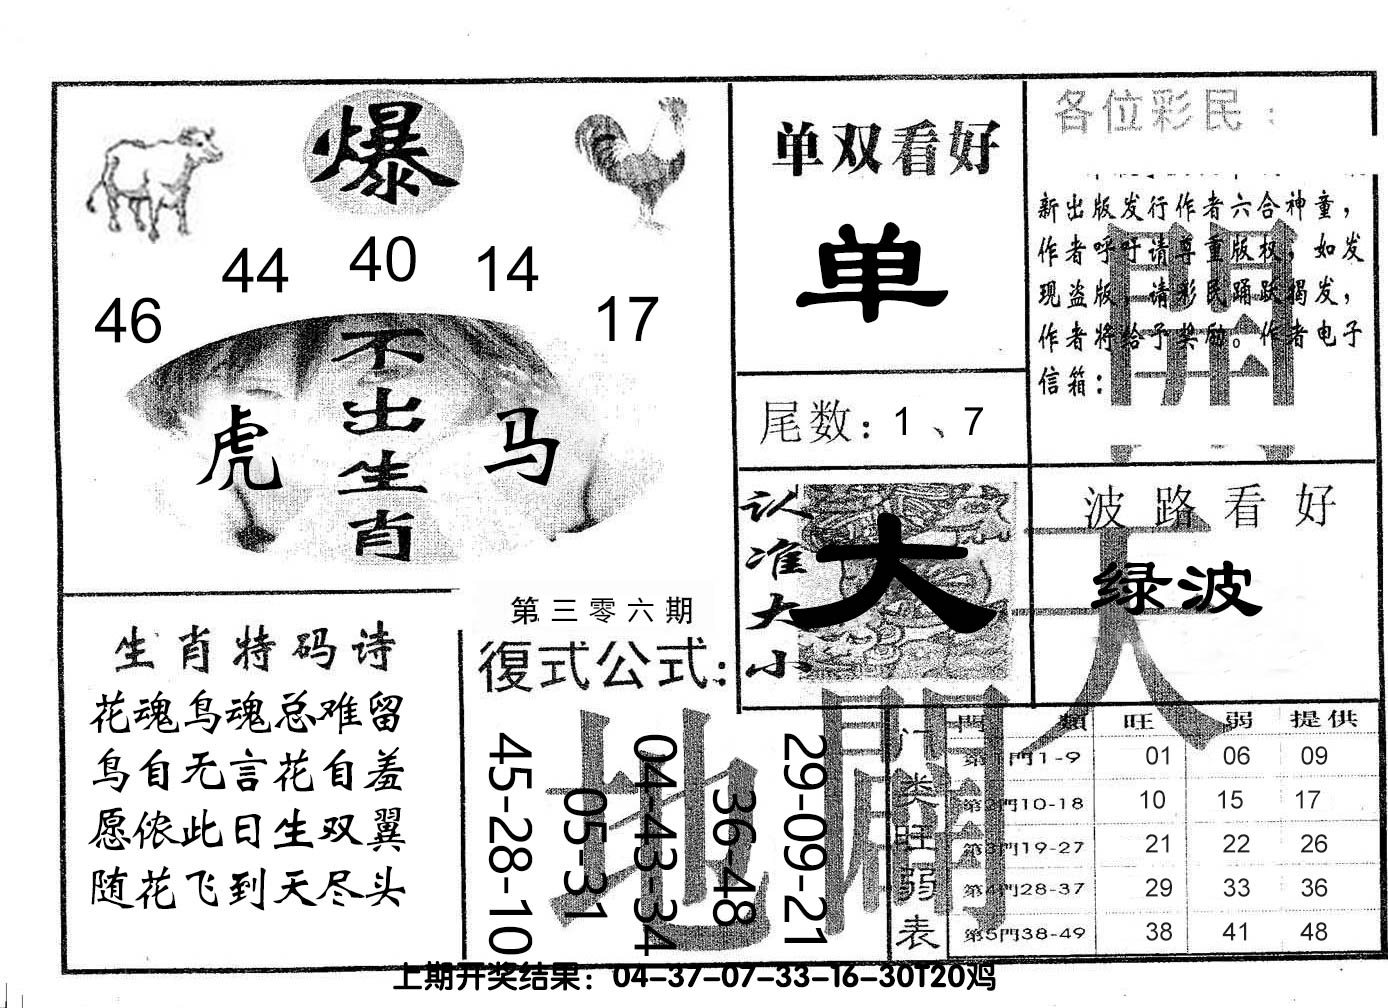 爆
44 40 14
46 17
不出生肖
虎 马
单双看好
单
尾数：1、7
各位彩民：
新出版发行作者六合神童，
作者呼吁请尊重版权，如发
现盗版，请彩民踊跃揭发，
作者将给予奖励。作者电子
信箱：
認准大小
大
波路看好
绿波
天
開
生肖特码诗
花魂鸟魂总难留
鸟自无言花自羞
愿侬此日生双翼
随花飞到天尽头
第三零六期
復式公式：
45-28-10
05-31
04-43-34
36-48
29-09-21
地
開
门类旺弱表
門 類 旺 弱 提供
第1門1-9 01 06 09
第2門10-18 10 15 17
第3門19-27 21 22 26
第4門28-37 29 33 36
第5門38-49 38 41 48
上期开奖结果：04-37-07-33-16-30T20鸡